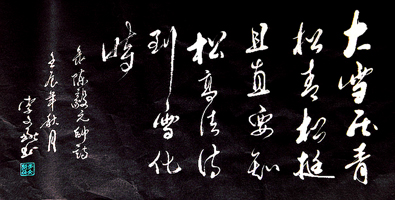 大雪压青
松青松挺
且直要知
松高洁待
到雪化
时
录陈毅元帅诗
壬辰年秋月
李